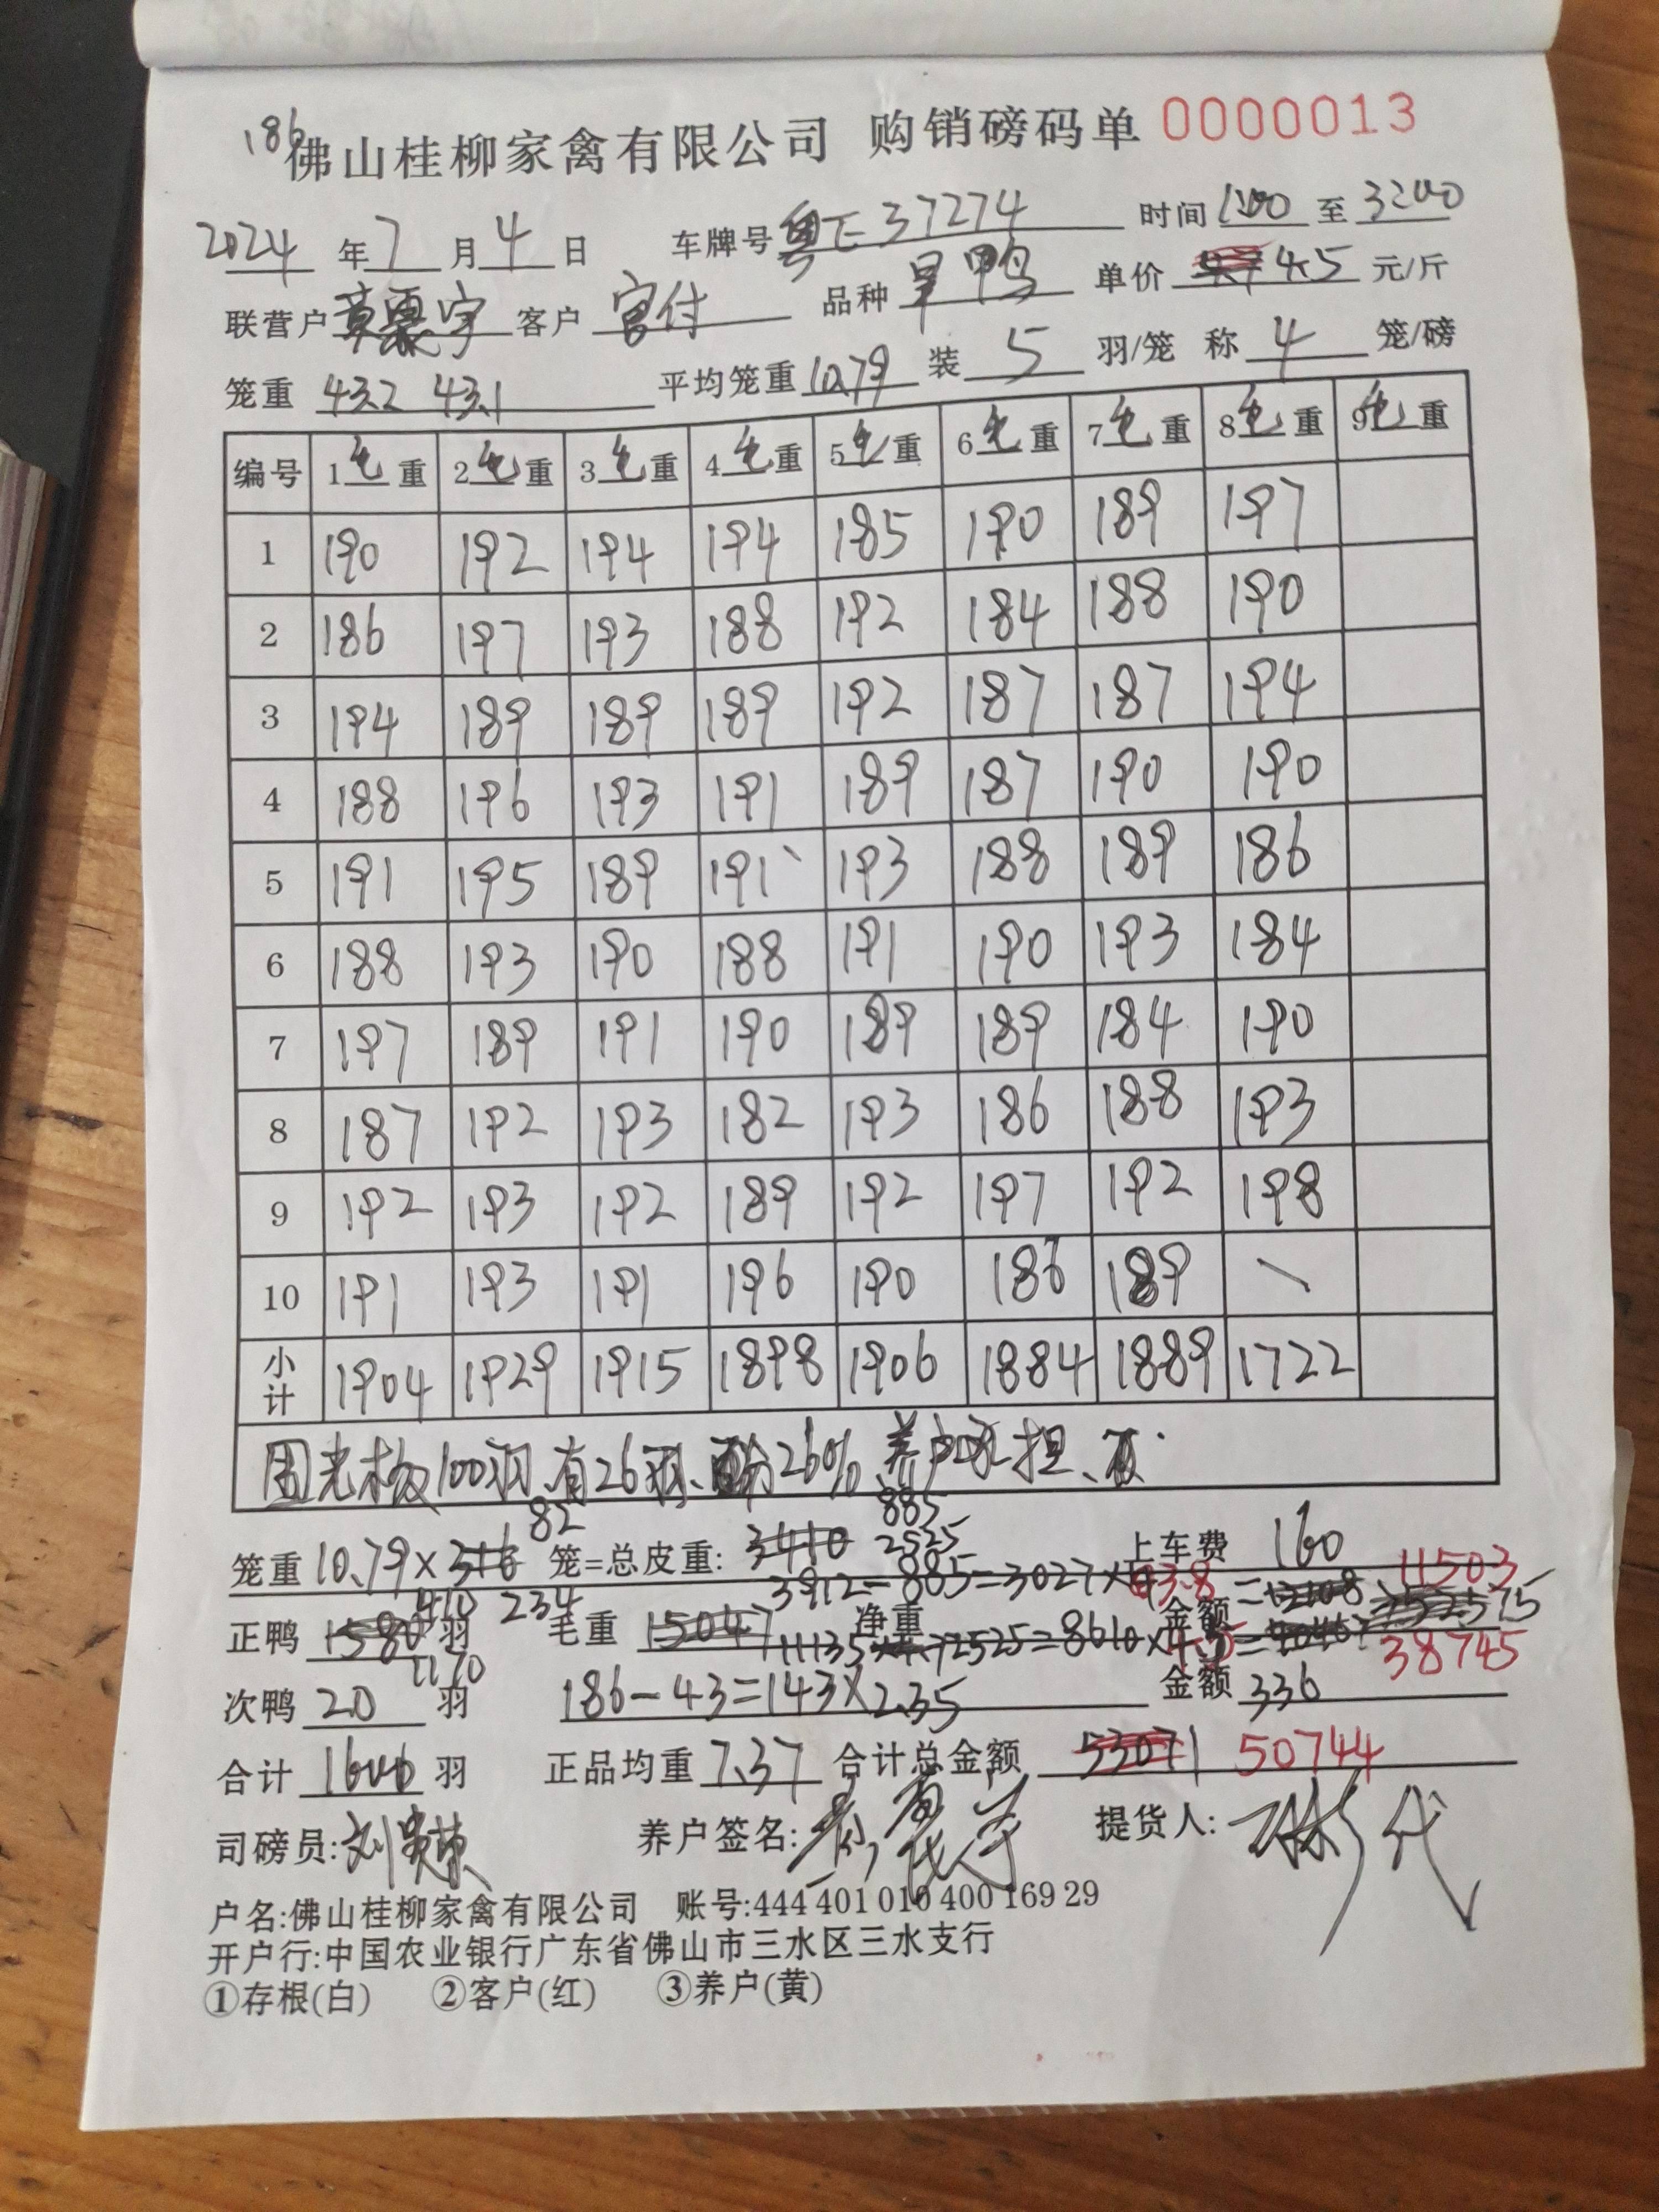 186
佛山桂柳家禽有限公司 购销磅码单 0000013
2024年7月4日 车牌号粤E37274 时间1:00至3:00
联营户 客户 品种旱鸭 单价4.5元/斤
笼重 43.2 43.1 平均笼重10.79 装5羽/笼 称4笼/磅
编号 1毛重 2毛重 3毛重 4毛重 5毛重 6毛重 7毛重 8毛重 9毛重
1 190 192 194 194 185 190 189 197
2 186 197 193 188 192 184 188 190
3 194 189 189 189 192 187 187 194
4 188 196 193 191 189 187 190 190
5 191 195 189 191 193 188 189 186
6 188 193 190 188 191 190 193 184
7 197 189 191 190 189 189 184 190
8 187 192 193 182 193 186 188 193
9 192 193 192 189 192 197 192 198
10 191 193 191 196 190 186 189 \
小计 1904 1929 1915 1898 1906 1884 1889 1722
100羽、有26羽、26%养户承担、
82 885
笼重10.79×316 笼=总皮重: 3410 2525 上车费 160
410 234 3912-885=3027×3.8= 11503
正鸭1580羽 毛重 15047 净重 金额
1170 11135-2525=8610×4.5= 38745
次鸭20羽 186-43=143×2.35 金额336
合计1600羽 正品均重7.37 合计总金额 53071 50744
司磅员: 养户签名: 提货人:
户名:佛山桂柳家禽有限公司 账号:444 401 010 400 169 29
开户行:中国农业银行广东省佛山市三水区三水支行
①存根(白) ②客户(红) ③养户(黄)